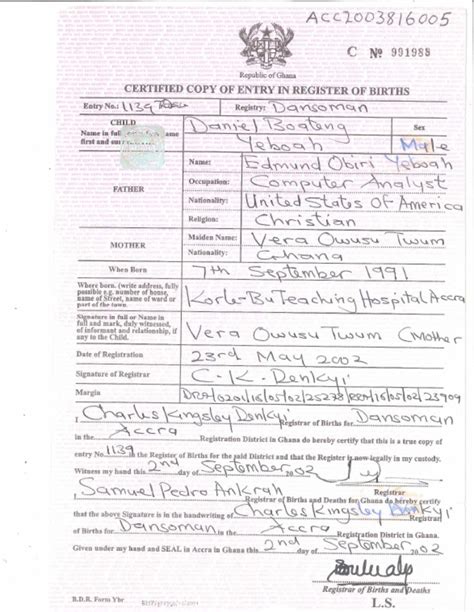 ACC2003816005
C Nº 991988
Republic of Ghana
CERTIFIED COPY OF ENTRY IN REGISTER OF BIRTHS
Entry No.: 1139 Registry: Dansoman
CHILD
Name in full name
first and
Daniel Boateng
Yeboah
Sex
Male
FATHER
Name: Edmund Obiri Yeboah
Occupation: Computer Analyst
Nationality: United States Of America
Religion: Christian
MOTHER
Maiden Name: Vera Owusu Twum
Nationality: Ghana
When Born 7th September 1991
Where born. (write address, fully
possible e.g. number of house,
name of Street, name of ward or
part of the town.
Korle-Bu Teaching Hospital Accra
Signature in full or Name in
full and mark, duly witnessed,
of informant and relationship, if
any to the Child.
Vera Owusu Twum (Mother
Date of Registration 23rd May 2002
Signature of Registrar C-K-Denkyi
Margin
I Charles Kingsley Denkyi Registrar of Births for Dansoman
in the Accra Registration District in Ghana do hereby certify that this is a true copy of
entry No. 1139 in the Register of Births for the said District and that the Register is now legally in my custody.
Witness my hand this 2nd day of September 02
Registrar
Samuel Pedro Ankrah Registrar of Births and Deaths for Ghana do hereby certify
that the above Signature is in the handwriting of Charles Kingsley Denkyi Registrar
of Births for Dansoman in the Accra Registration District in Ghana.
Given under my hand and SEAL in Accra in Ghana this 2nd day of September 02
Registrar of Births and Deaths
L.S.
B.D.R. Form Ybr